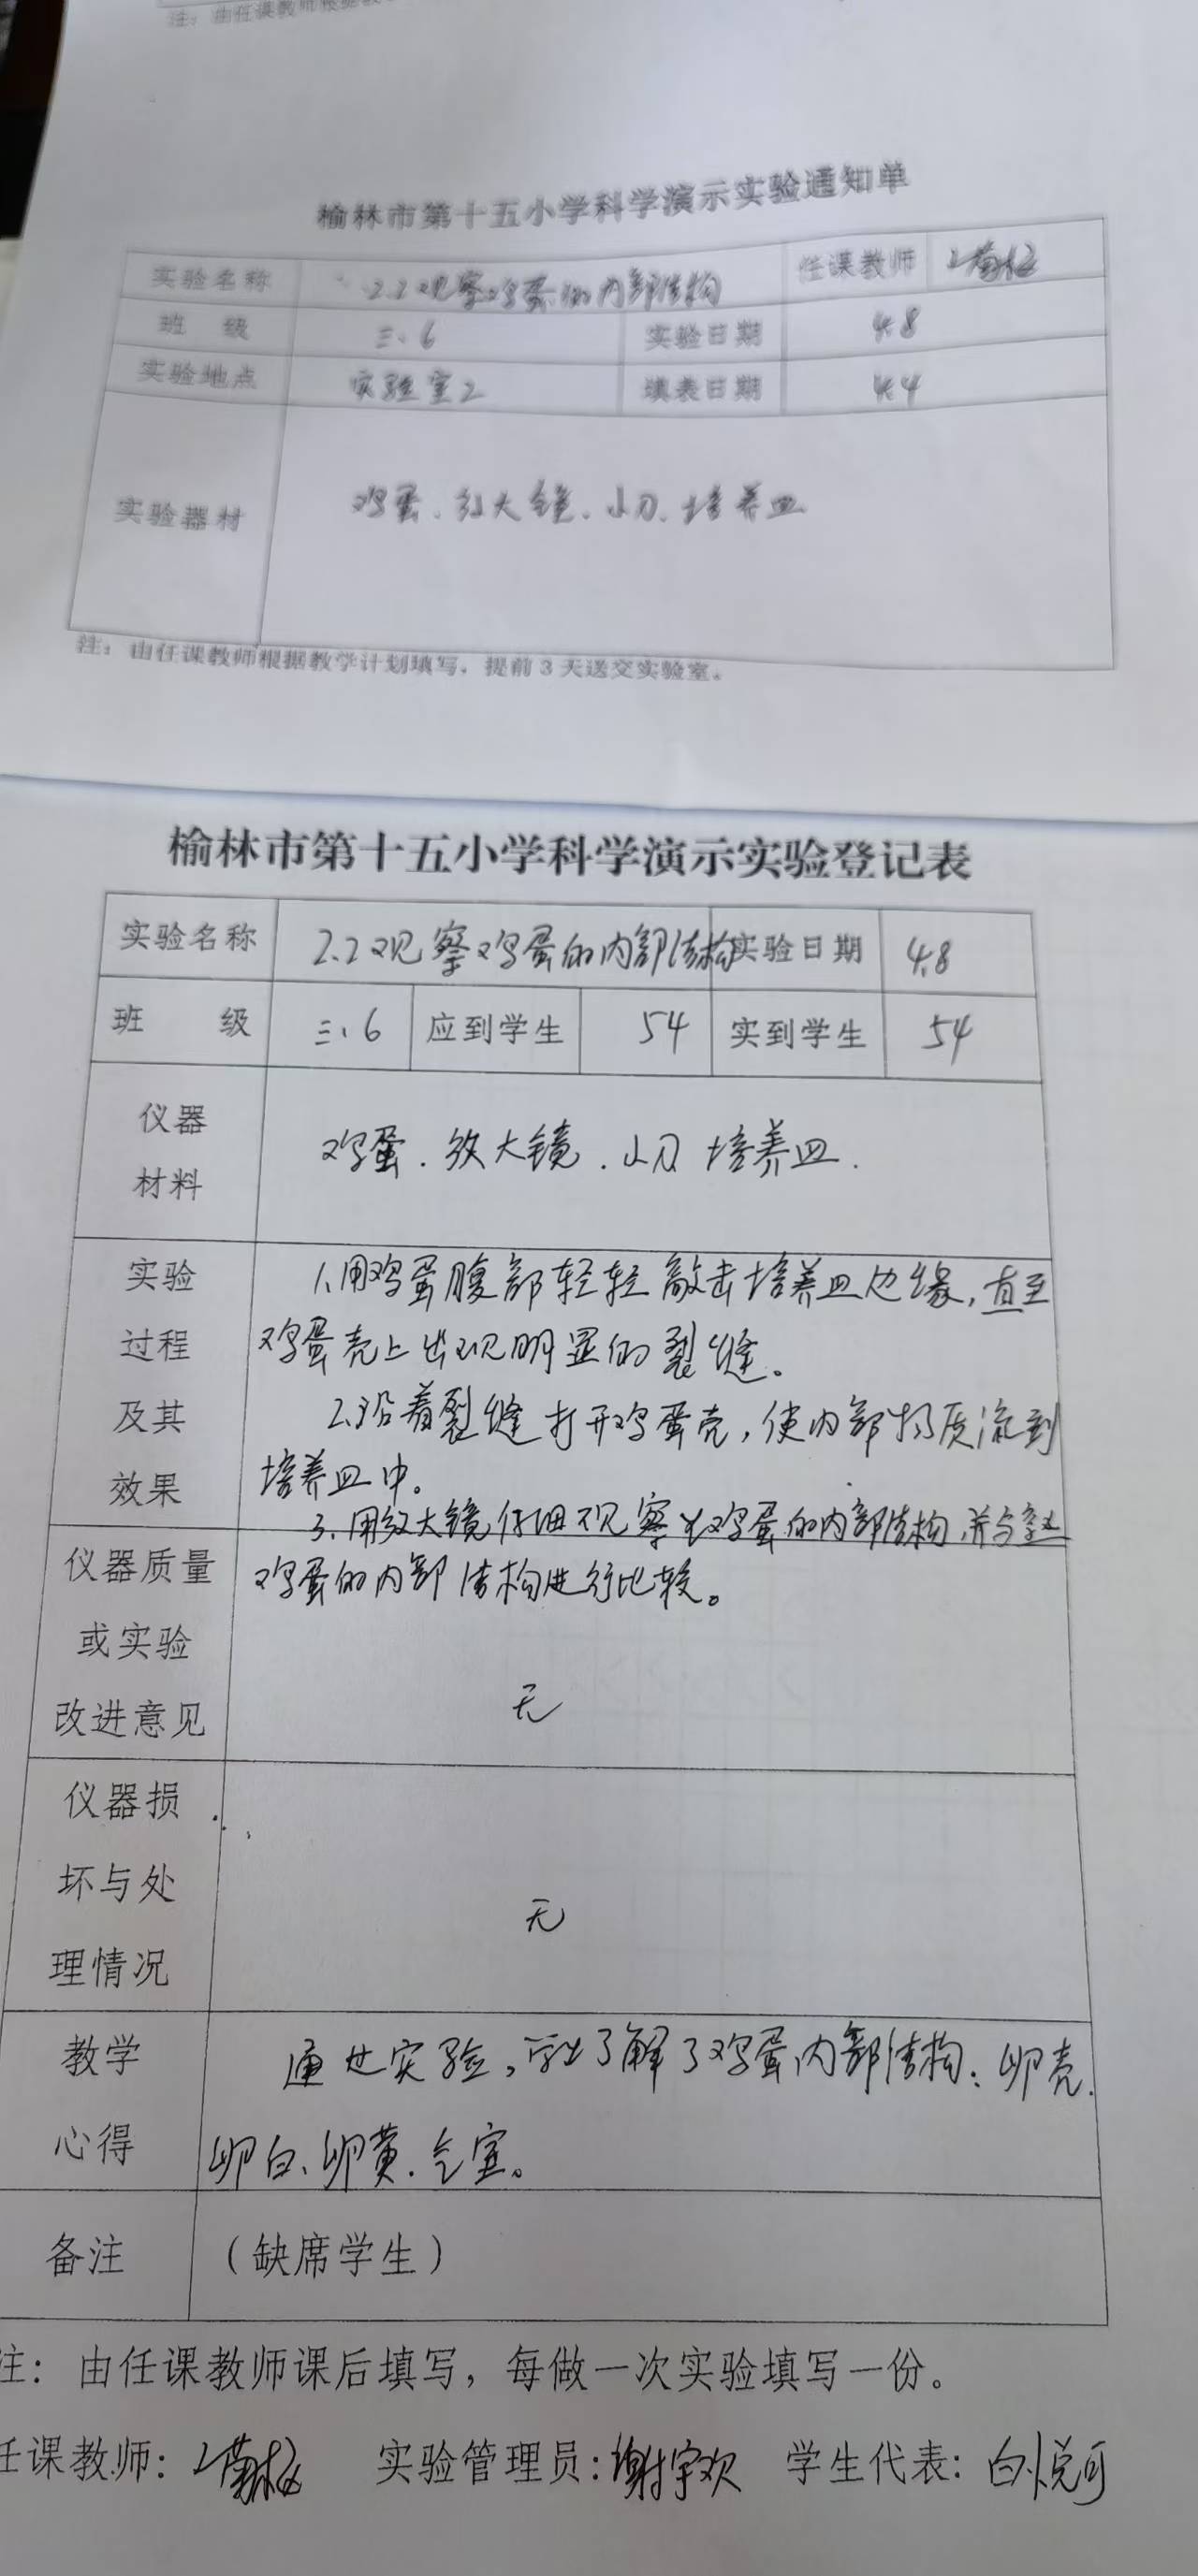 注：由任课教师根据教
榆林市第十五小学科学演示实验通知单
实验名称 2.2观察鸡蛋的内部结构 任课教师
班 级 三.6 实验日期 4.8
实验地点 实验室2 填表日期 4.4
实验器材 鸡蛋、放大镜、小刀、培养皿
注：由任课教师根据教学计划填写，提前3天送交实验室。
榆林市第十五小学科学演示实验登记表
实验名称 2.2观察鸡蛋的内部结构 实验日期 4.8
班 级 三、6 应到学生 54 实到学生 54
仪器
材料
鸡蛋.放大镜.小刀 培养皿.
实验
过程
及其
效果
1.用鸡蛋腹部轻轻敲击培养皿边缘,直至
鸡蛋壳上出现明显的裂缝。
2.沿着裂缝打开鸡蛋壳,使内部物质流到
培养皿中。
3.用放大镜仔细观察生鸡蛋的内部结构,并与熟
鸡蛋的内部结构进行比较。
仪器质量
或实验
改进意见
无
仪器损
坏与处
理情况
无
教学
心得
通过实验,学生了解了鸡蛋内部结构：卵壳.
卵白、卵黄.气室。
备注 （缺席学生）
注：由任课教师课后填写，每做一次实验填写一份。
任课教师： 实验管理员：谢宇欢 学生代表：白悦可